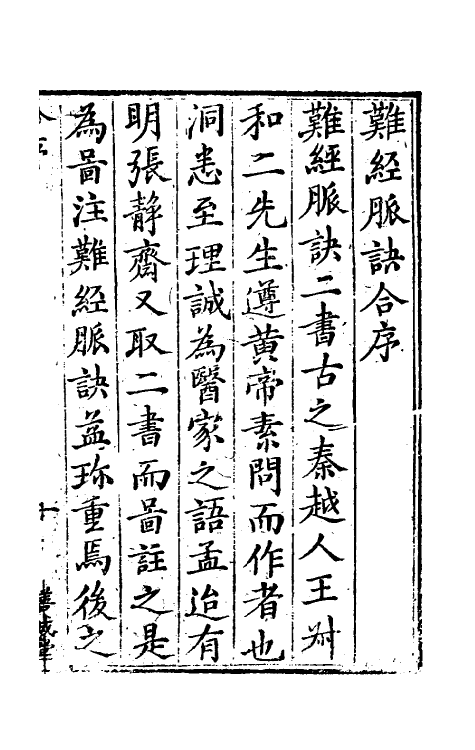 難經脈訣合序
難經脈訣二書古之秦越人王叔
和二先生遵黄帝素問而作者也
洞悉至理誠為醫家之語孟迨有
明張靜齋又取二書而啚註之是
為啚注難經脈訣益珎重焉後之